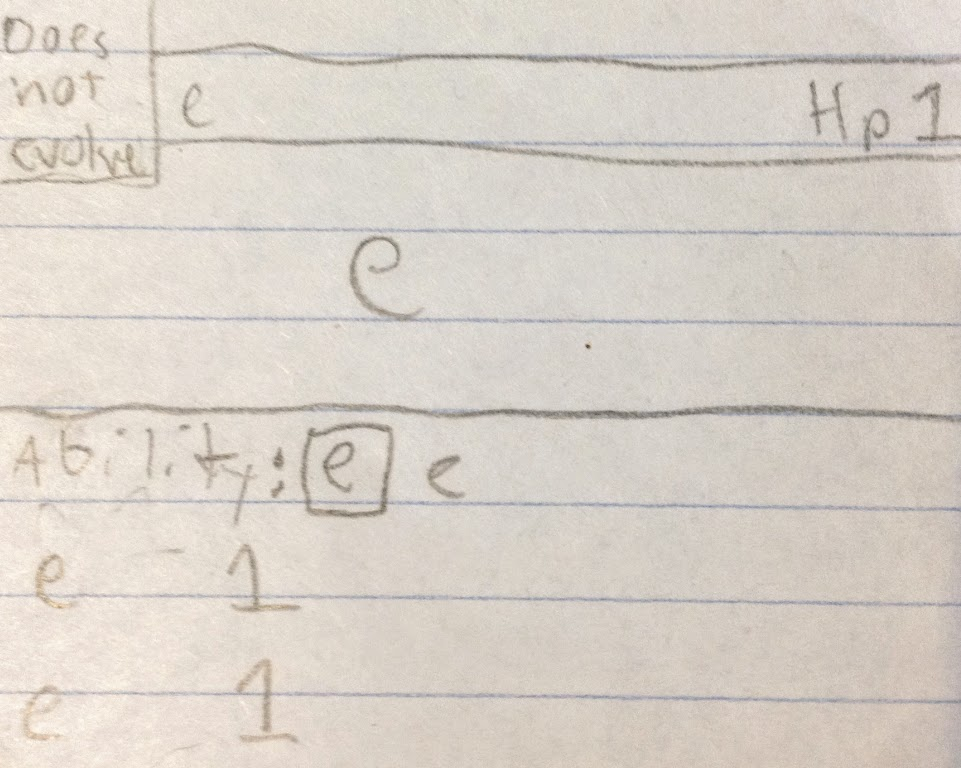 Does
not
evolve
e Hp 1
e
Ability: e e
e 1
e 1